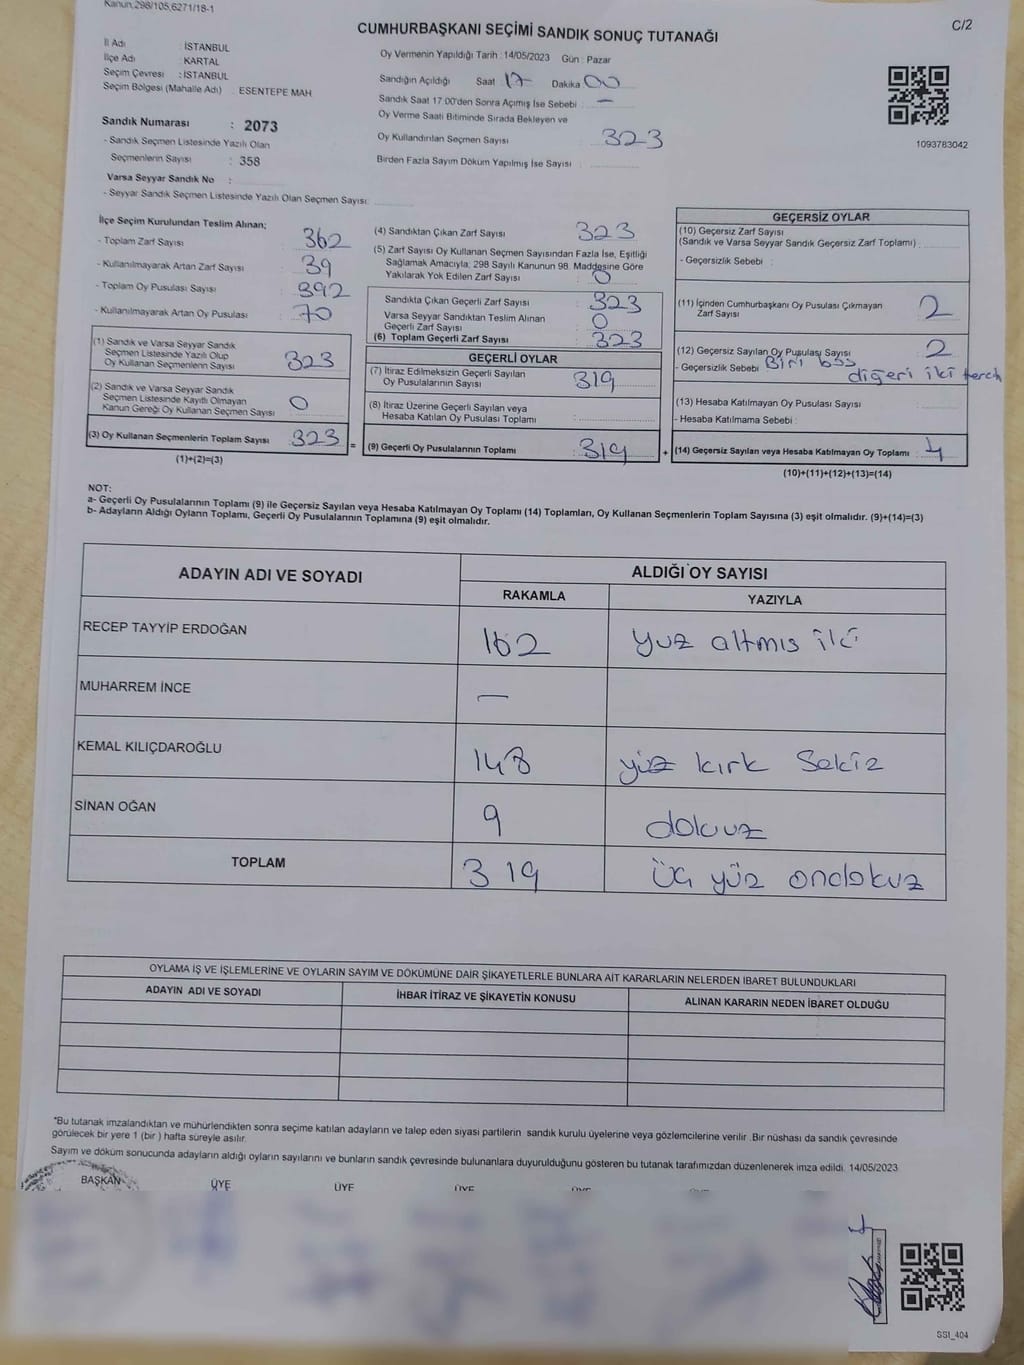 Kanun,298/105,6271/18-1
C/2
CUMHURBAŞKANI SEÇİMİ SANDIK SONUÇ TUTANAĞI
İl Adı : İSTANBUL
İlçe Adı : KARTAL
Seçim Çevresi : İSTANBUL
Seçim Bölgesi (Mahalle Adı) ESENTEPE MAH
Sandık Numarası : 2073
- Sandık Seçmen Listesinde Yazılı Olan
Seçmenlerin Sayısı : 358
Varsa Seyyar Sandık No :
- Seyyar Sandık Seçmen Listesinde Yazılı Olan Seçmen Sayısı:
Oy Vermenin Yapıldığı Tarih : 14/05/2023 Gün : Pazar
Sandığın Açıldığı Saat 17 Dakika 00
Sandık Saat 17.00'den Sonra Açımış İse Sebebi : —
Oy Verme Saati Bitiminde Sırada Bekleyen ve
Oy Kullandırılan Seçmen Sayısı : 323
Birden Fazla Sayım Döküm Yapılmış İse Sayısı :
1093783042
İlçe Seçim Kurulundan Teslim Alınan;
- Toplam Zarf Sayısı : 362
- Kullanılmayarak Artan Zarf Sayısı : 39
- Toplam Oy Pusulası Sayısı : 392
- Kullanılmayarak Artan Oy Pusulası : 70
(1) Sandık ve Varsa Seyyar Sandık
Seçmen Listesinde Yazılı Olup
Oy Kullanan Seçmenlerin Sayısı : 323
(2) Sandık ve Varsa Seyyar Sandık
Seçmen Listesinde Kayıtlı Olmayan
Kanun Gereği Oy Kullanan Seçmen Sayısı : 0
(3) Oy Kullanan Seçmenlerin Toplam Sayısı : 323 =
(1)+(2)=(3)
(4) Sandıktan Çıkan Zarf Sayısı : 323
(5) Zarf Sayısı Oy Kullanan Seçmen Sayısından Fazla İse, Eşitliği
Sağlamak Amacıyla; 298 Sayılı Kanunun 98. Maddesine Göre
Yakılarak Yok Edilen Zarf Sayısı : 0
Sandıkta Çıkan Geçerli Zarf Sayısı : 323
Varsa Seyyar Sandıktan Teslim Alınan
Geçerli Zarf Sayısı : 0
(6) Toplam Geçerli Zarf Sayısı : 323
GEÇERLİ OYLAR
(7) İtiraz Edilmeksizin Geçerli Sayılan
Oy Pusulalarının Sayısı : 319
(8) İtiraz Üzerine Geçerli Sayılan veya
Hesaba Katılan Oy Pusulası Toplamı :
(9) Geçerli Oy Pusulalarının Toplamı : 319 +
GEÇERSİZ OYLAR
(10) Geçersiz Zarf Sayısı
(Sandık ve Varsa Seyyar Sandık Geçersiz Zarf Toplamı) :
- Geçersizlik Sebebi :
(11) İçinden Cumhurbaşkanı Oy Pusulası Çıkmayan
Zarf Sayısı : 2
(12) Geçersiz Sayılan Oy Pusulası Sayısı : 2
- Geçersizlik Sebebi Biri boş
diğeri iki terch
(13) Hesaba Katılmayan Oy Pusulası Sayısı :
- Hesaba Katılmama Sebebi :
(14) Geçersiz Sayılan veya Hesaba Katılmayan Oy Toplamı : 4
(10)+(11)+(12)+(13)=(14)
NOT:
a- Geçerli Oy Pusulalarının Toplamı (9) ile Geçersiz Sayılan veya Hesaba Katılmayan Oy Toplamı (14) Toplamları, Oy Kullanan Seçmenlerin Toplam Sayısına (3) eşit olmalıdır. (9)+(14)=(3)
b- Adayların Aldığı Oyların Toplamı, Geçerli Oy Pusulalarının Toplamına (9) eşit olmalıdır.
ADAYIN ADI VE SOYADI
ALDIĞI OY SAYISI
RAKAMLA YAZIYLA
RECEP TAYYİP ERDOĞAN 162 yuz altmıs iki
MUHARREM İNCE —
KEMAL KILIÇDAROĞLU 148 yüz kırk Sekiz
SİNAN OĞAN 9 dokuz
TOPLAM 319 üç yüz ondokuz
OYLAMA İŞ VE İŞLEMLERİNE VE OYLARIN SAYIM VE DÖKÜMÜNE DAİR ŞİKAYETLERLE BUNLARA AİT KARARLARIN NELERDEN İBARET BULUNDUKLARI
ADAYIN ADI VE SOYADI İHBAR İTİRAZ VE ŞİKAYETİN KONUSU ALINAN KARARIN NEDEN İBARET OLDUĞU
*Bu tutanak imzalandıktan ve mühürlendikten sonra seçime katılan adayların ve talep eden siyasi partilerin sandık kurulu üyelerine veya gözlemcilerine verilir. Bir nüshası da sandık çevresinde
görülecek bir yere 1 (bir ) hafta süreyle asılır.
Sayım ve döküm sonucunda adayların aldığı oyların sayılarını ve bunların sandık çevresinde bulunanlara duyurulduğunu gösteren bu tutanak tarafımızdan düzenlenerek imza edildi. 14/05/2023
BAŞKAN ÜYE ÜYE ÜYE
SS1_404